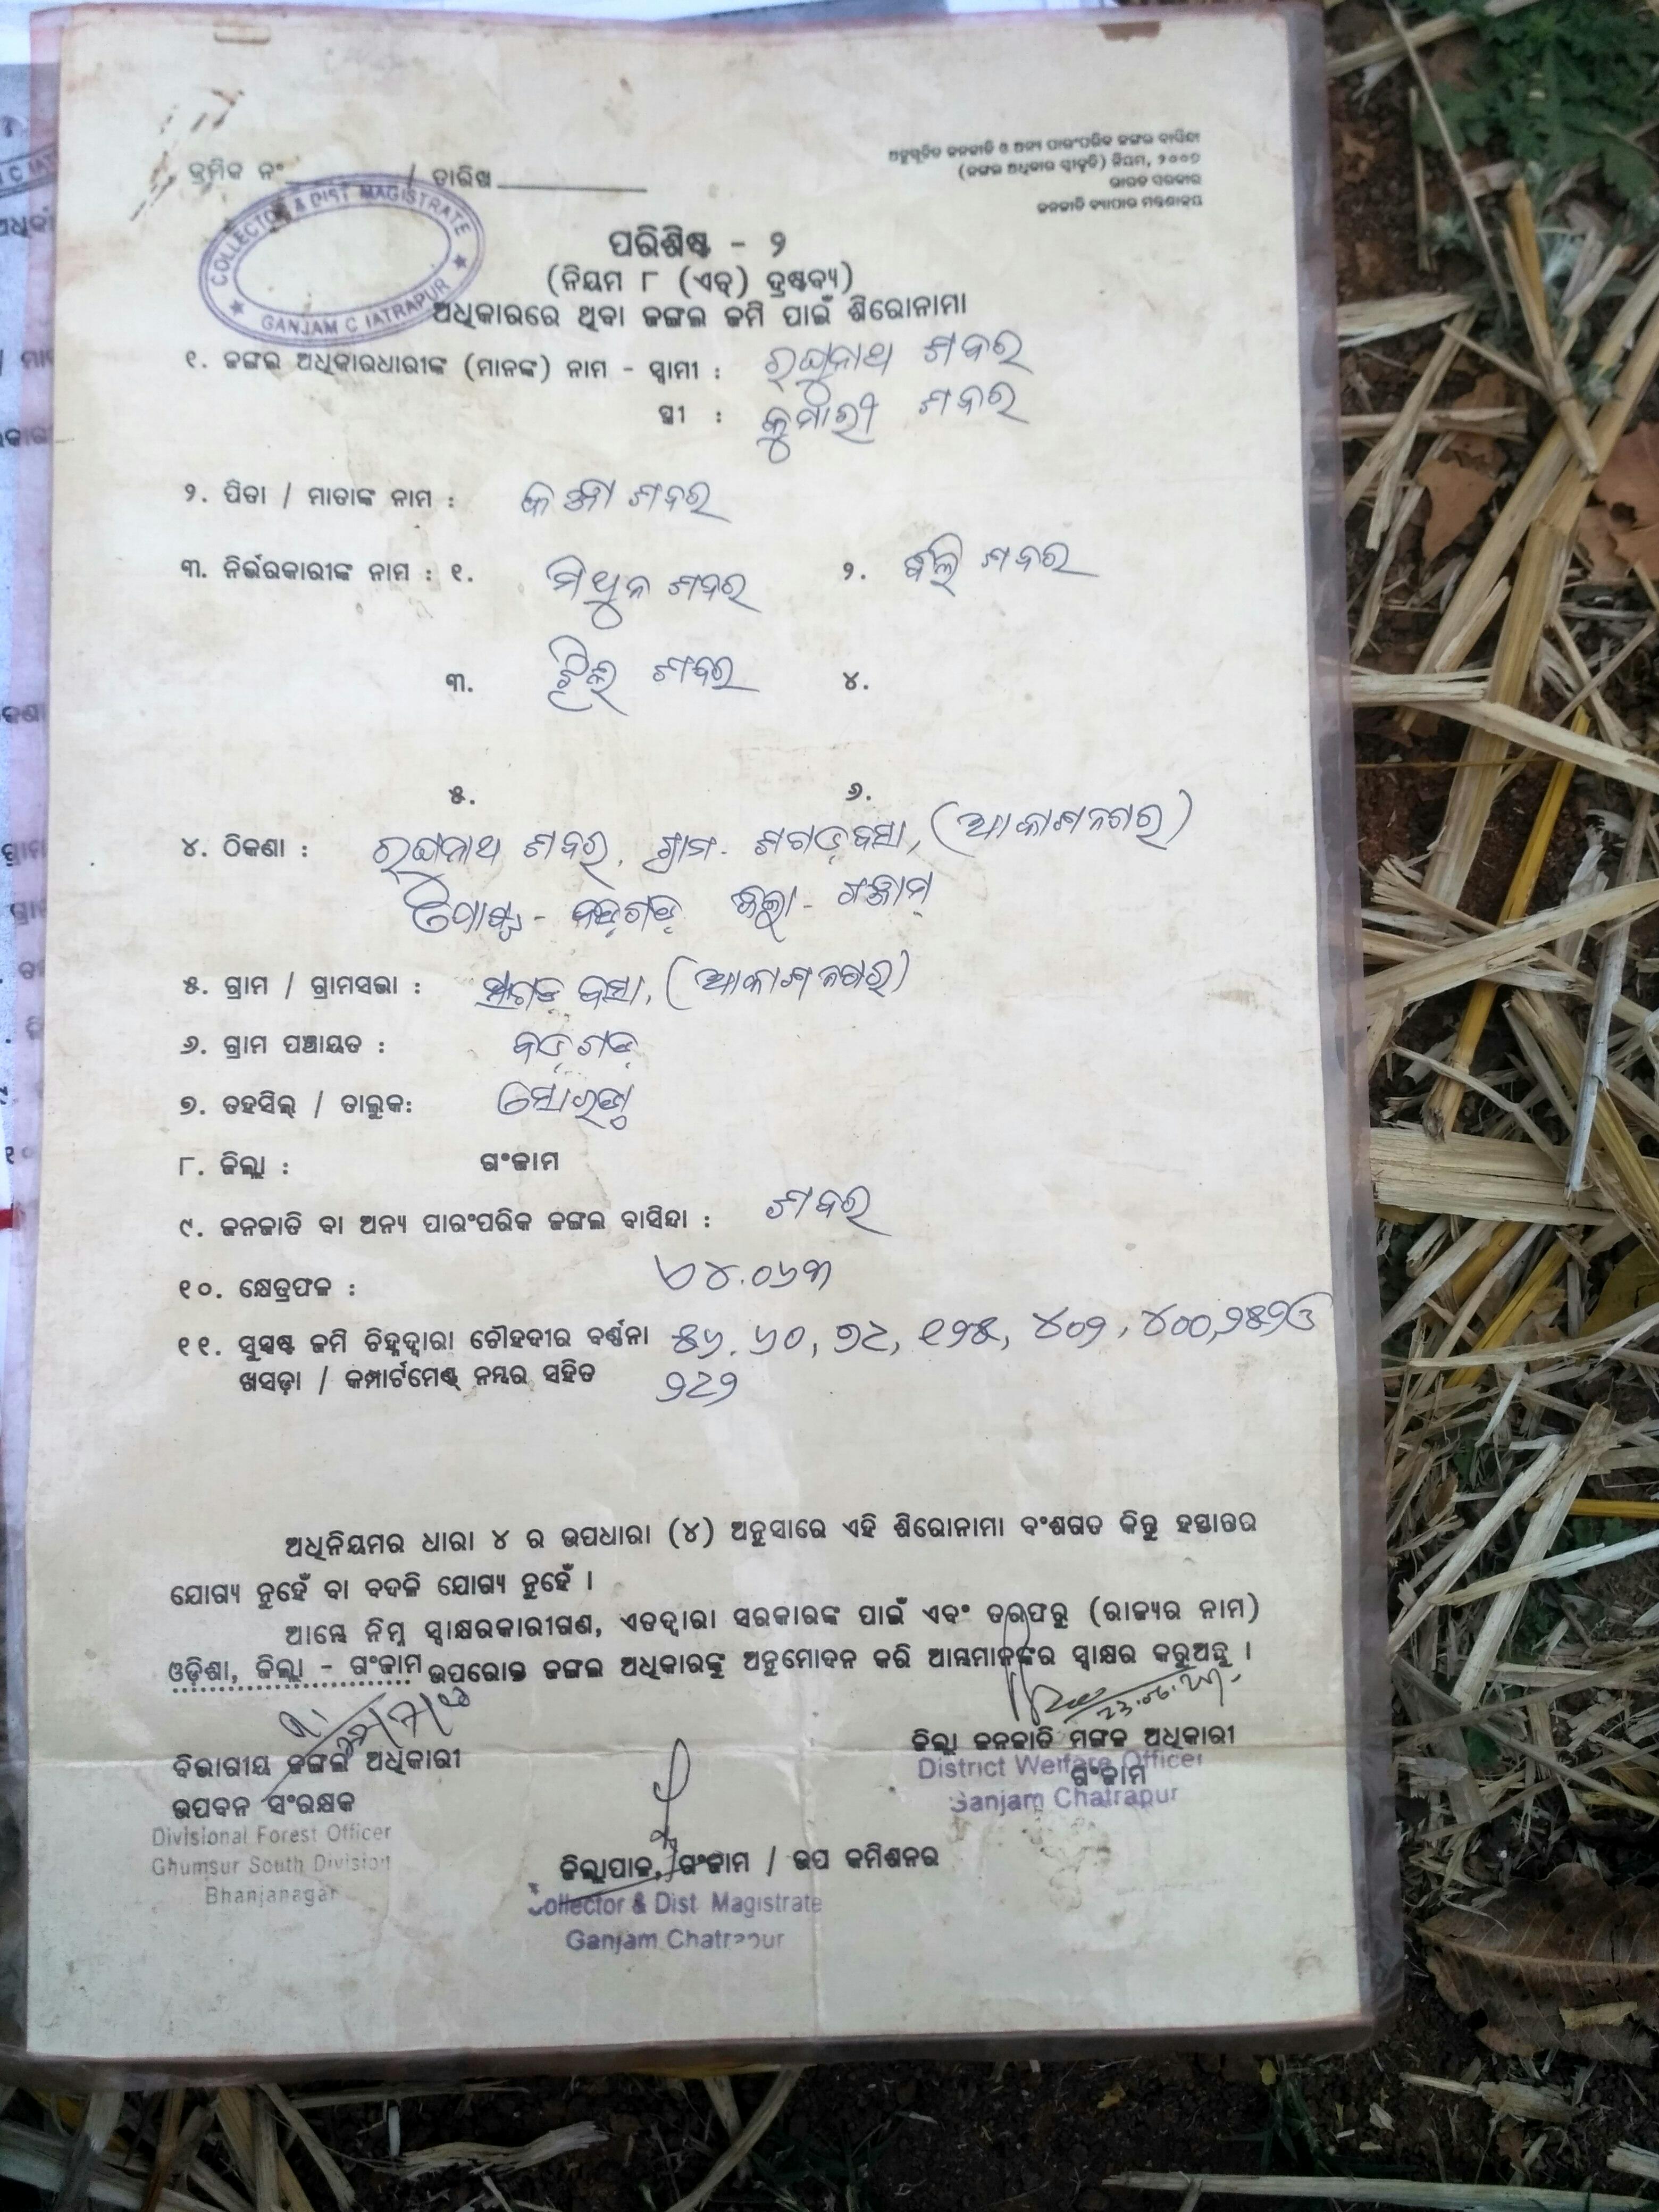 କ୍ରମିକ ନଂ / ତାରିଖ
ଅନୁସୂଚିତ ଜନଜାତି ଓ ଅନ୍ୟ ପାରଂପରିକ ଜଙ୍ଗଲ ବାସିନ୍ଦା
(ଜଙ୍ଗଲ ଅଧିକାର ସ୍ୱୀକୃତି) ନିୟମ, ୨୦୦୭
ଭାରତ ସରକାର
ଜନଜାତି ବ୍ୟାପାର ମନ୍ତ୍ରଣାଳୟ
COLLECTOR & DIST MAGISTRATE
GANJAM
ପରିଶିଷ୍ଟ - ୨
(ନିୟମ ୮ (ଏଚ୍) ଦ୍ରଷ୍ଟବ୍ୟ)
ଅଧିକାରରେ ଥିବା ଜଙ୍ଗଲ ଜମି ପାଇଁ ଶିରୋନାମା
୧. ଜଙ୍ଗଲ ଅଧିକାରଧାରୀଙ୍କ (ମାନଙ୍କ) ନାମ - ସ୍ୱାମୀ : ରଘୁନାଥ ଶବର
ସ୍ତ୍ରୀ : କୁମାରୀ ଶବର
୨. ପିତା / ମାତାଙ୍କ ନାମ : ଶବର
୩. ନିର୍ଭରକାରୀଙ୍କ ନାମ : ୧. ମିଥୁନ ଶବର ୨. ଶବର
୩. ଶବର ୪.
୫. ୬.
୪. ଠିକଣା : ରଘୁନାଥ ଶବର, ଗ୍ରାମ- ଶଗଡ଼ବସା, (ଆକାଶନଗର)
ପୋଷ୍ଟ - ବଡ଼ଗଡ଼ ଜିଲ୍ଲା - ଗଞ୍ଜାମ
୫. ଗ୍ରାମ / ଗ୍ରାମସଭା : ଶଗଡ ବସା, (ଆକାଶନଗର)
୬. ଗ୍ରାମ ପଞ୍ଚାୟତ : ବଡ଼ଗଡ଼
୭. ତହସିଲ୍ / ତାଲୁକ: ସୋରଡ଼ା
୮. ଜିଲ୍ଲା : ଗଂଜାମ
୯. ଜନଜାତି ବା ଅନ୍ୟ ପାରଂପରିକ ଜଙ୍ଗଲ ବାସିନ୍ଦା : ଶବର
୧୦. କ୍ଷେତ୍ରଫଳ : ୪.୦୬୩
୧୧. ସୁସ୍ପଷ୍ଟ ଜମି ଚିହ୍ନଦ୍ୱାରା ଚୌହଦୀର ବର୍ଣ୍ଣନା ୫୬, ୬୦, ୭୯, ୧୨୫, ୪୦୨, ୪୦୦, ୨୫୨ଓ
ଖସଡ଼ା / କମ୍ପାର୍ଟମେଣ୍ଟ୍ ନମ୍ବର ସହିତ ୨୯୨
ଅଧିନିୟମର ଧାରା ୪ ର ଉପଧାରା (୪) ଅନୁସାରେ ଏହି ଶିରୋନାମା ବଂଶଗତ କିନ୍ତୁ ହସ୍ତାନ୍ତର
ଯୋଗ୍ୟ ନୁହେଁ ବା ବଦଳି ଯୋଗ୍ୟ ନୁହେଁ ।
ଆମ୍ଭେ ନିମ୍ନ ସ୍ୱାକ୍ଷରକାରୀଗଣ, ଏତଦ୍ୱାରା ସରକାରଙ୍କ ପାଇଁ ଏବଂ ତରଫରୁ (ରାଜ୍ୟର ନାମ)
ଓଡ଼ିଶା, ଜିଲ୍ଲା - ଗଂଜାମ ଉପରୋକ୍ତ ଜଙ୍ଗଲ ଅଧିକାରକୁ ଅନୁମୋଦନ କରି ଆମ୍ଭମାନଙ୍କର ସ୍ୱାକ୍ଷର କରୁଅଛୁ ।
ବିଭାଗୀୟ ଜଙ୍ଗଲ ଅଧିକାରୀ
ଉପବନ ସଂରକ୍ଷକ
Divisional Forest Officer
Ghumsur South Division
Bhanjanagar
ଜିଲ୍ଲା ଜନଜାତି ମଙ୍ଗଳ ଅଧିକାରୀ
ଗଂଜାମ
District Welfare Officer
Ganjam Chatrapur
ଜିଲ୍ଲାପାଳ, ଗଂଜାମ / ଉପ କମିଶନର
Collector & Dist. Magistrate
Ganjam Chatrapur